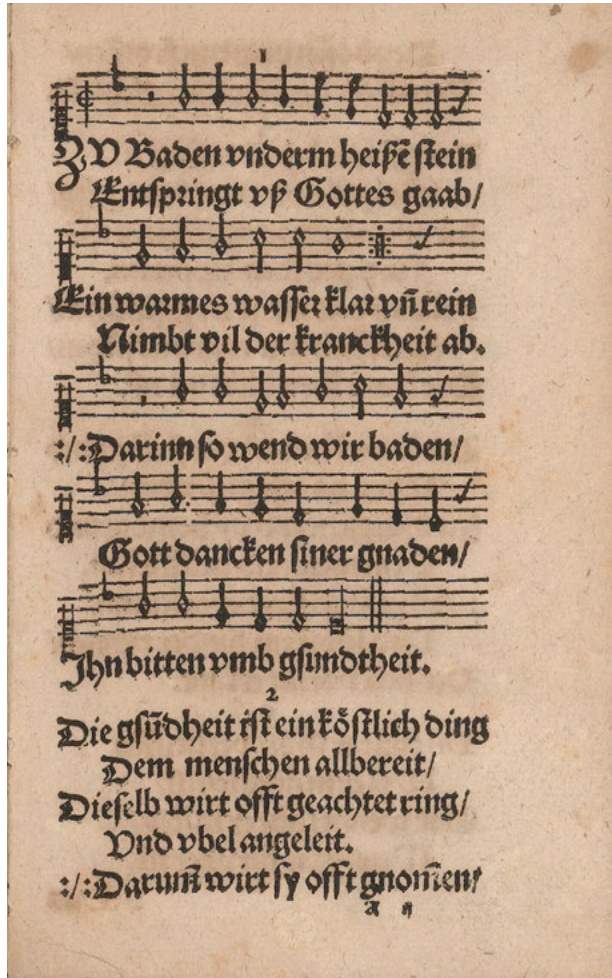 1
ZV Baden vnderm heißē stein
Entspringt vß Gottes gaab/
Ein warmes wasser klar vn̄ rein
Nimbt vil der kranckheit ab.
:/:Darinn so wend wir baden/
Gott dancken siner gnaden/
Ihn bitten vmb gsundtheit.
2
Die gsūdheit ist ein köstlich ding
Dem menschen allbereit/
Dieselb wirt offt geachtet ring/
Vnd vbel angeleit.
:/:Darum̄ wirt sy offt gnom̄en/